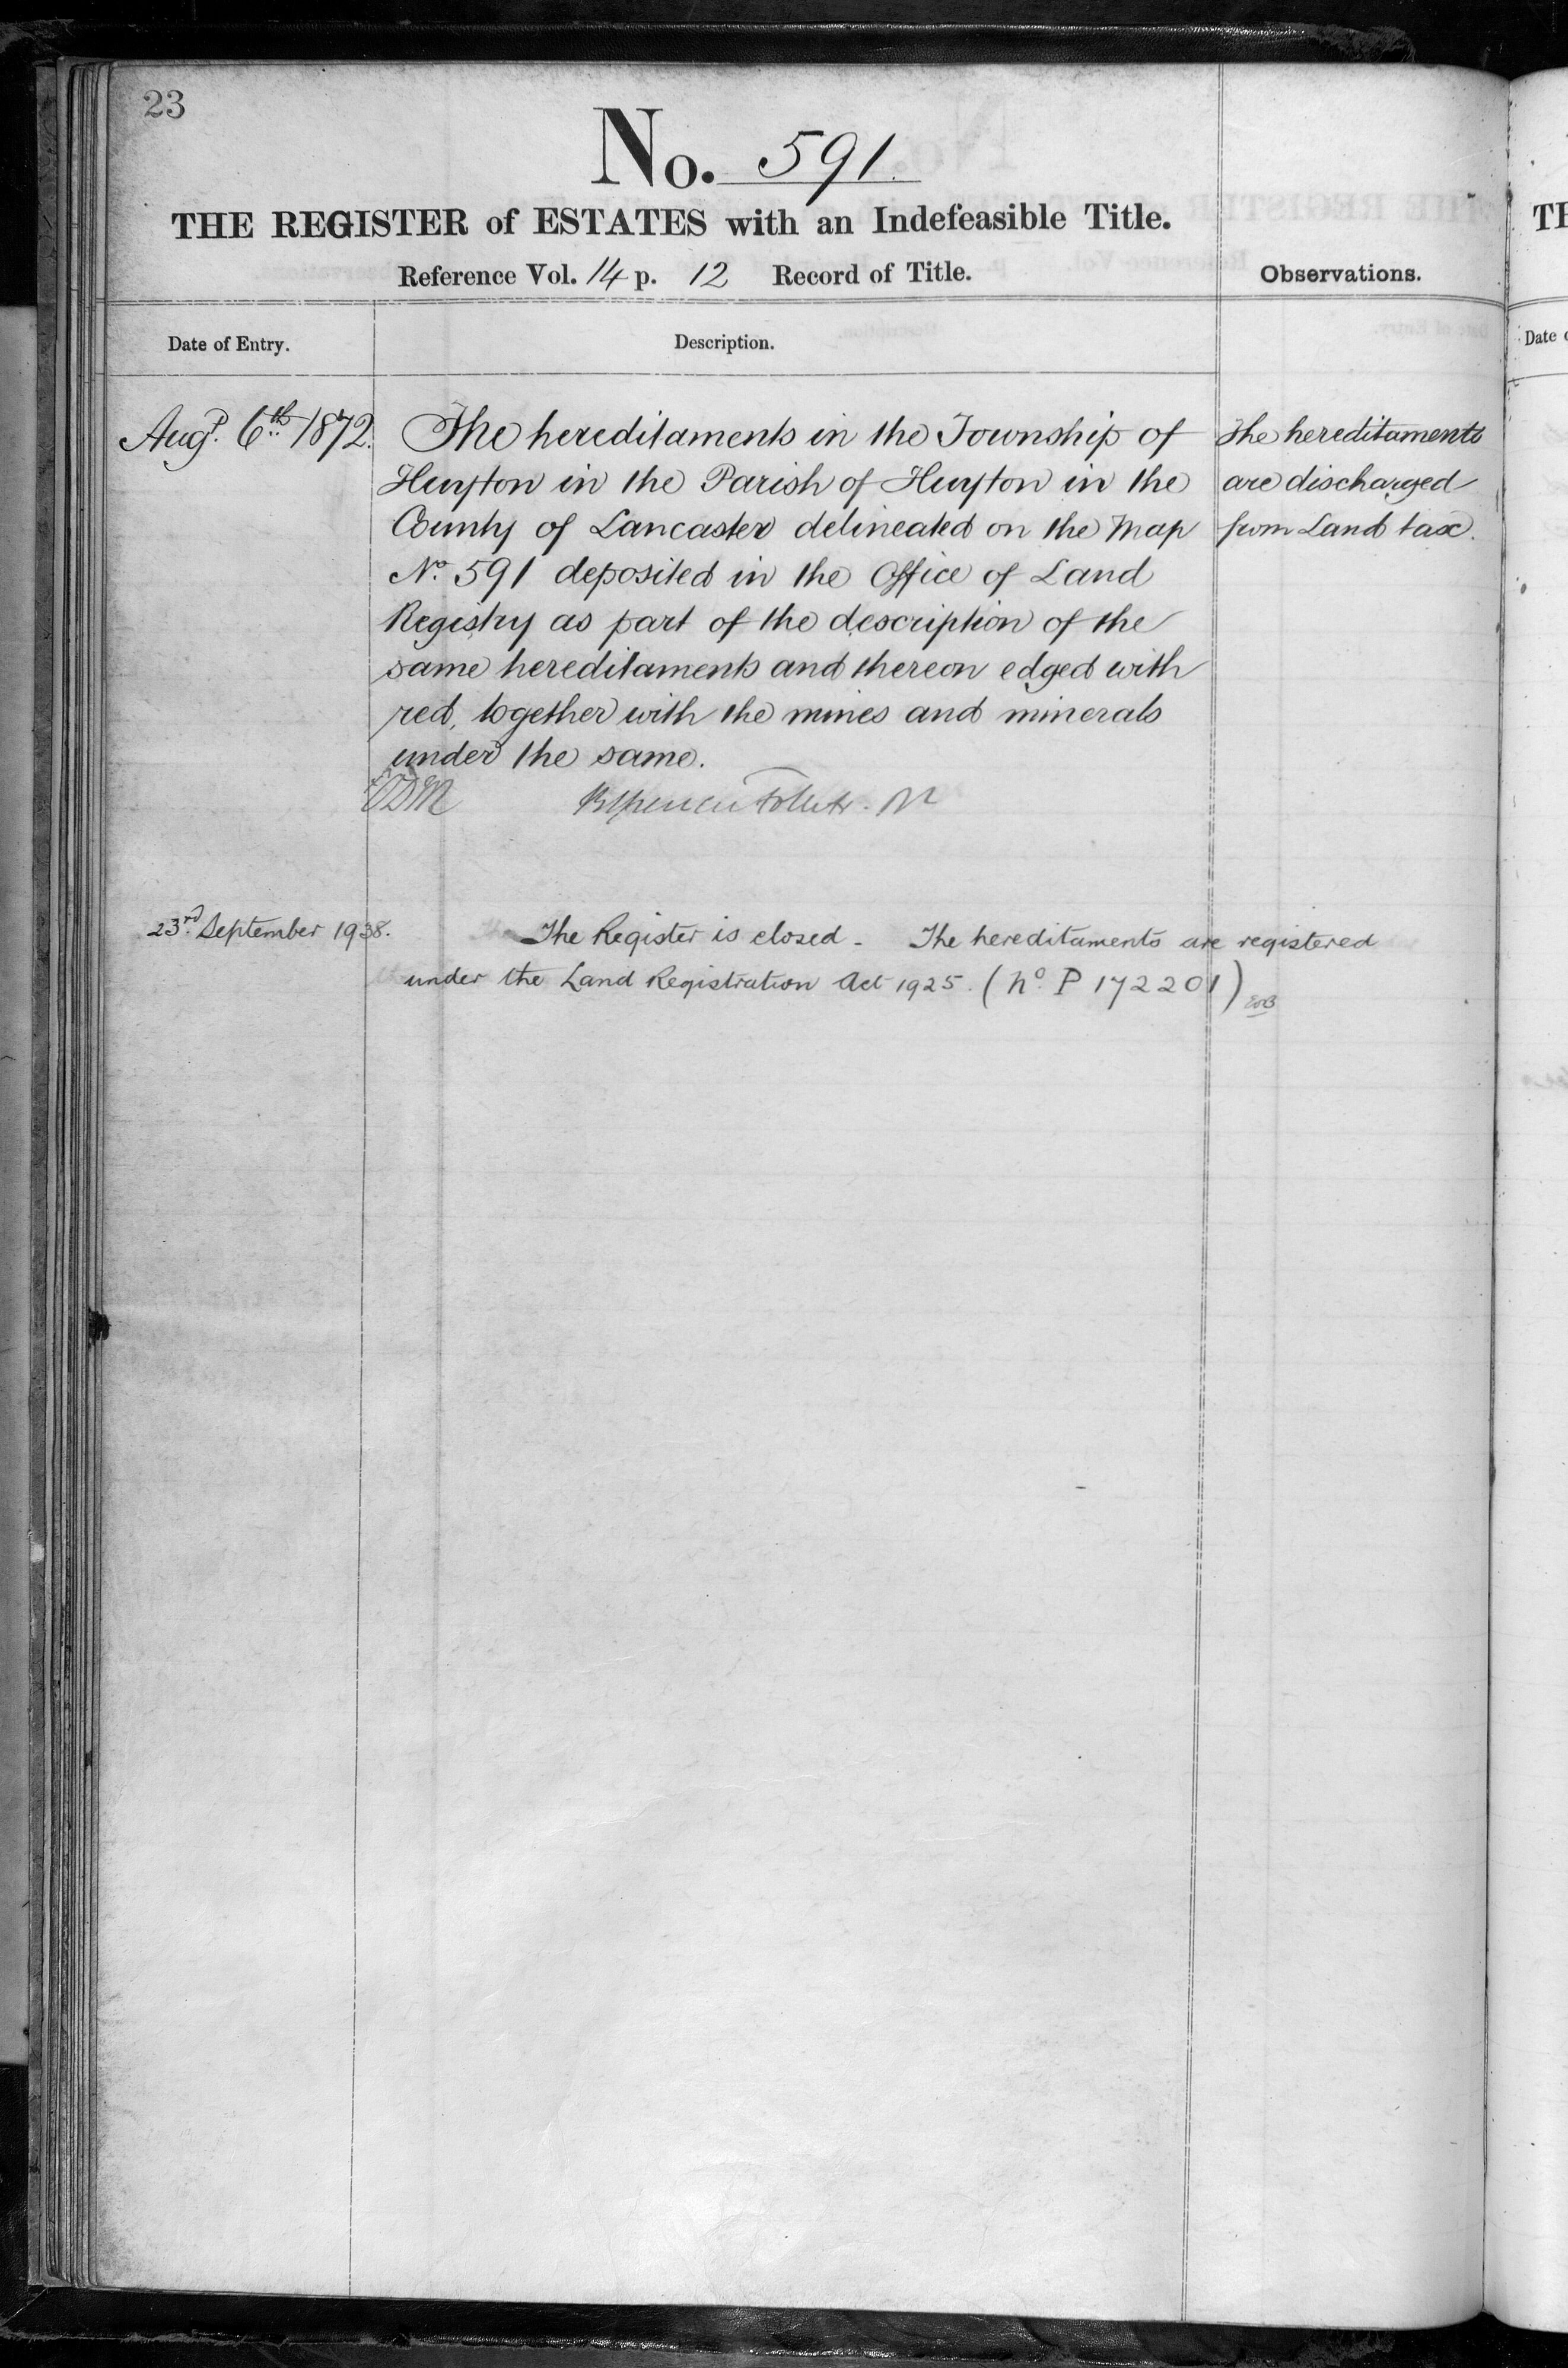 23
No. 591.
THE REGISTER of ESTATES with an Indefeasible Title.
Reference Vol. 14 p. 12 Record of Title.
Observations.
Date of Entry.
Description.
Augt. 6th 1872.
The hereditaments in the Township of
Huyton in the Parish of Huyton in the
County of Lancaster delineated on the Map
No. 591 deposited in the Office of Land
Registry as part of the description of the
same hereditaments and thereon edged with
red, together with the mines and minerals
under the same.
The hereditaments
are discharged
from Land tax.
23rd September 1938.
The Register is closed - The hereditaments are registered
under the Land Registration Act 1925. (No. P 172201)
TH
Date